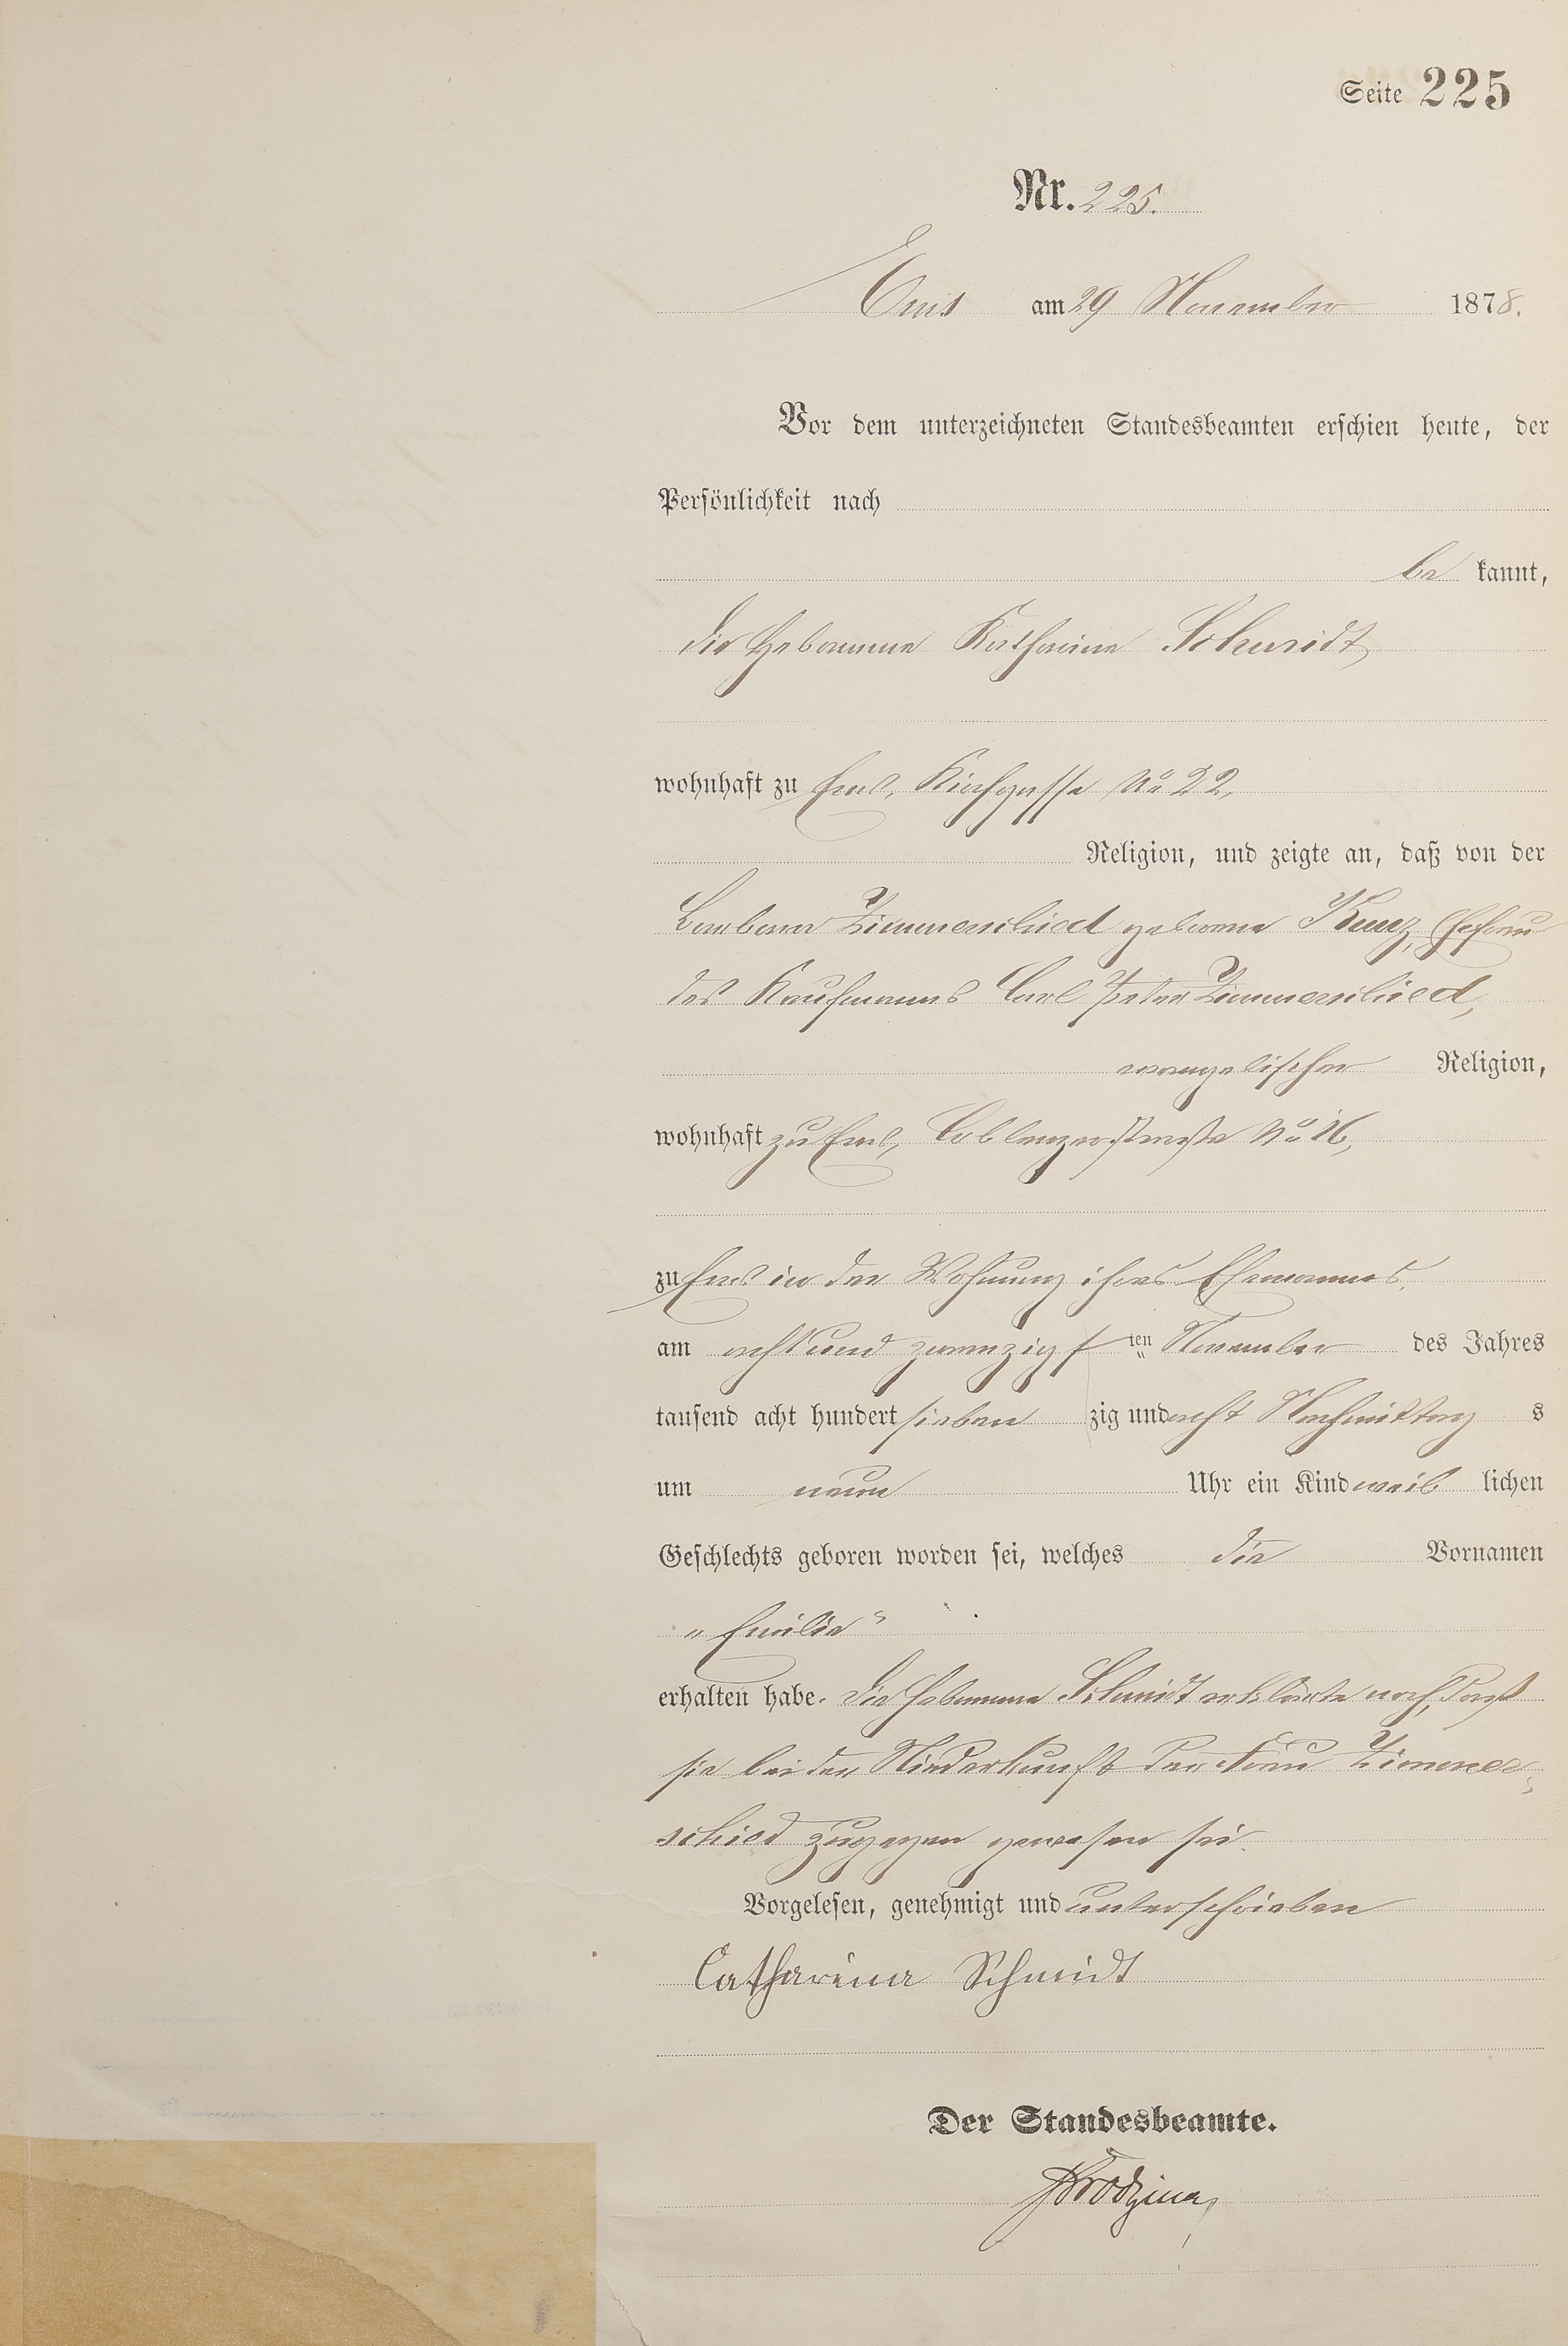 Seite 225
Nr. 225.
Ems am 29 November 1878.
Vor dem unterzeichneten Standesbeamten erschien heute, der
Persönlichkeit nach
be kannt,
die Hebamme Katharina Schmidt,
wohnhaft zu Ems, Kirchgasse No 22,
Religion, und zeigte an, daß von der
Barbara Zimmerschied geborene Kunz, Ehefrau
des Kaufmanns Carl Peter Zimmerschied,
evangelischer Religion,
wohnhaft zu Ems, Coblenzerstraße No 16,
zu Ems in der Wohnung ihres Ehemannes,
am acht und zwanzigs ten November des Jahres
tausend acht hundert sieben zig und acht Nachmittag s
um neun Uhr ein Kind weib lichen
Geschlechts geboren worden sei, welches die Vornamen
„Emilie“
erhalten habe. Die Hebamme Schmidt erklärte noch, daß
sie bei der Niederkunft der Frau Zimmer-
schied zugegen gewesen sei.
Vorgelesen, genehmigt und unterschrieben
Catharina Schmidt
Der Standesbeamte.